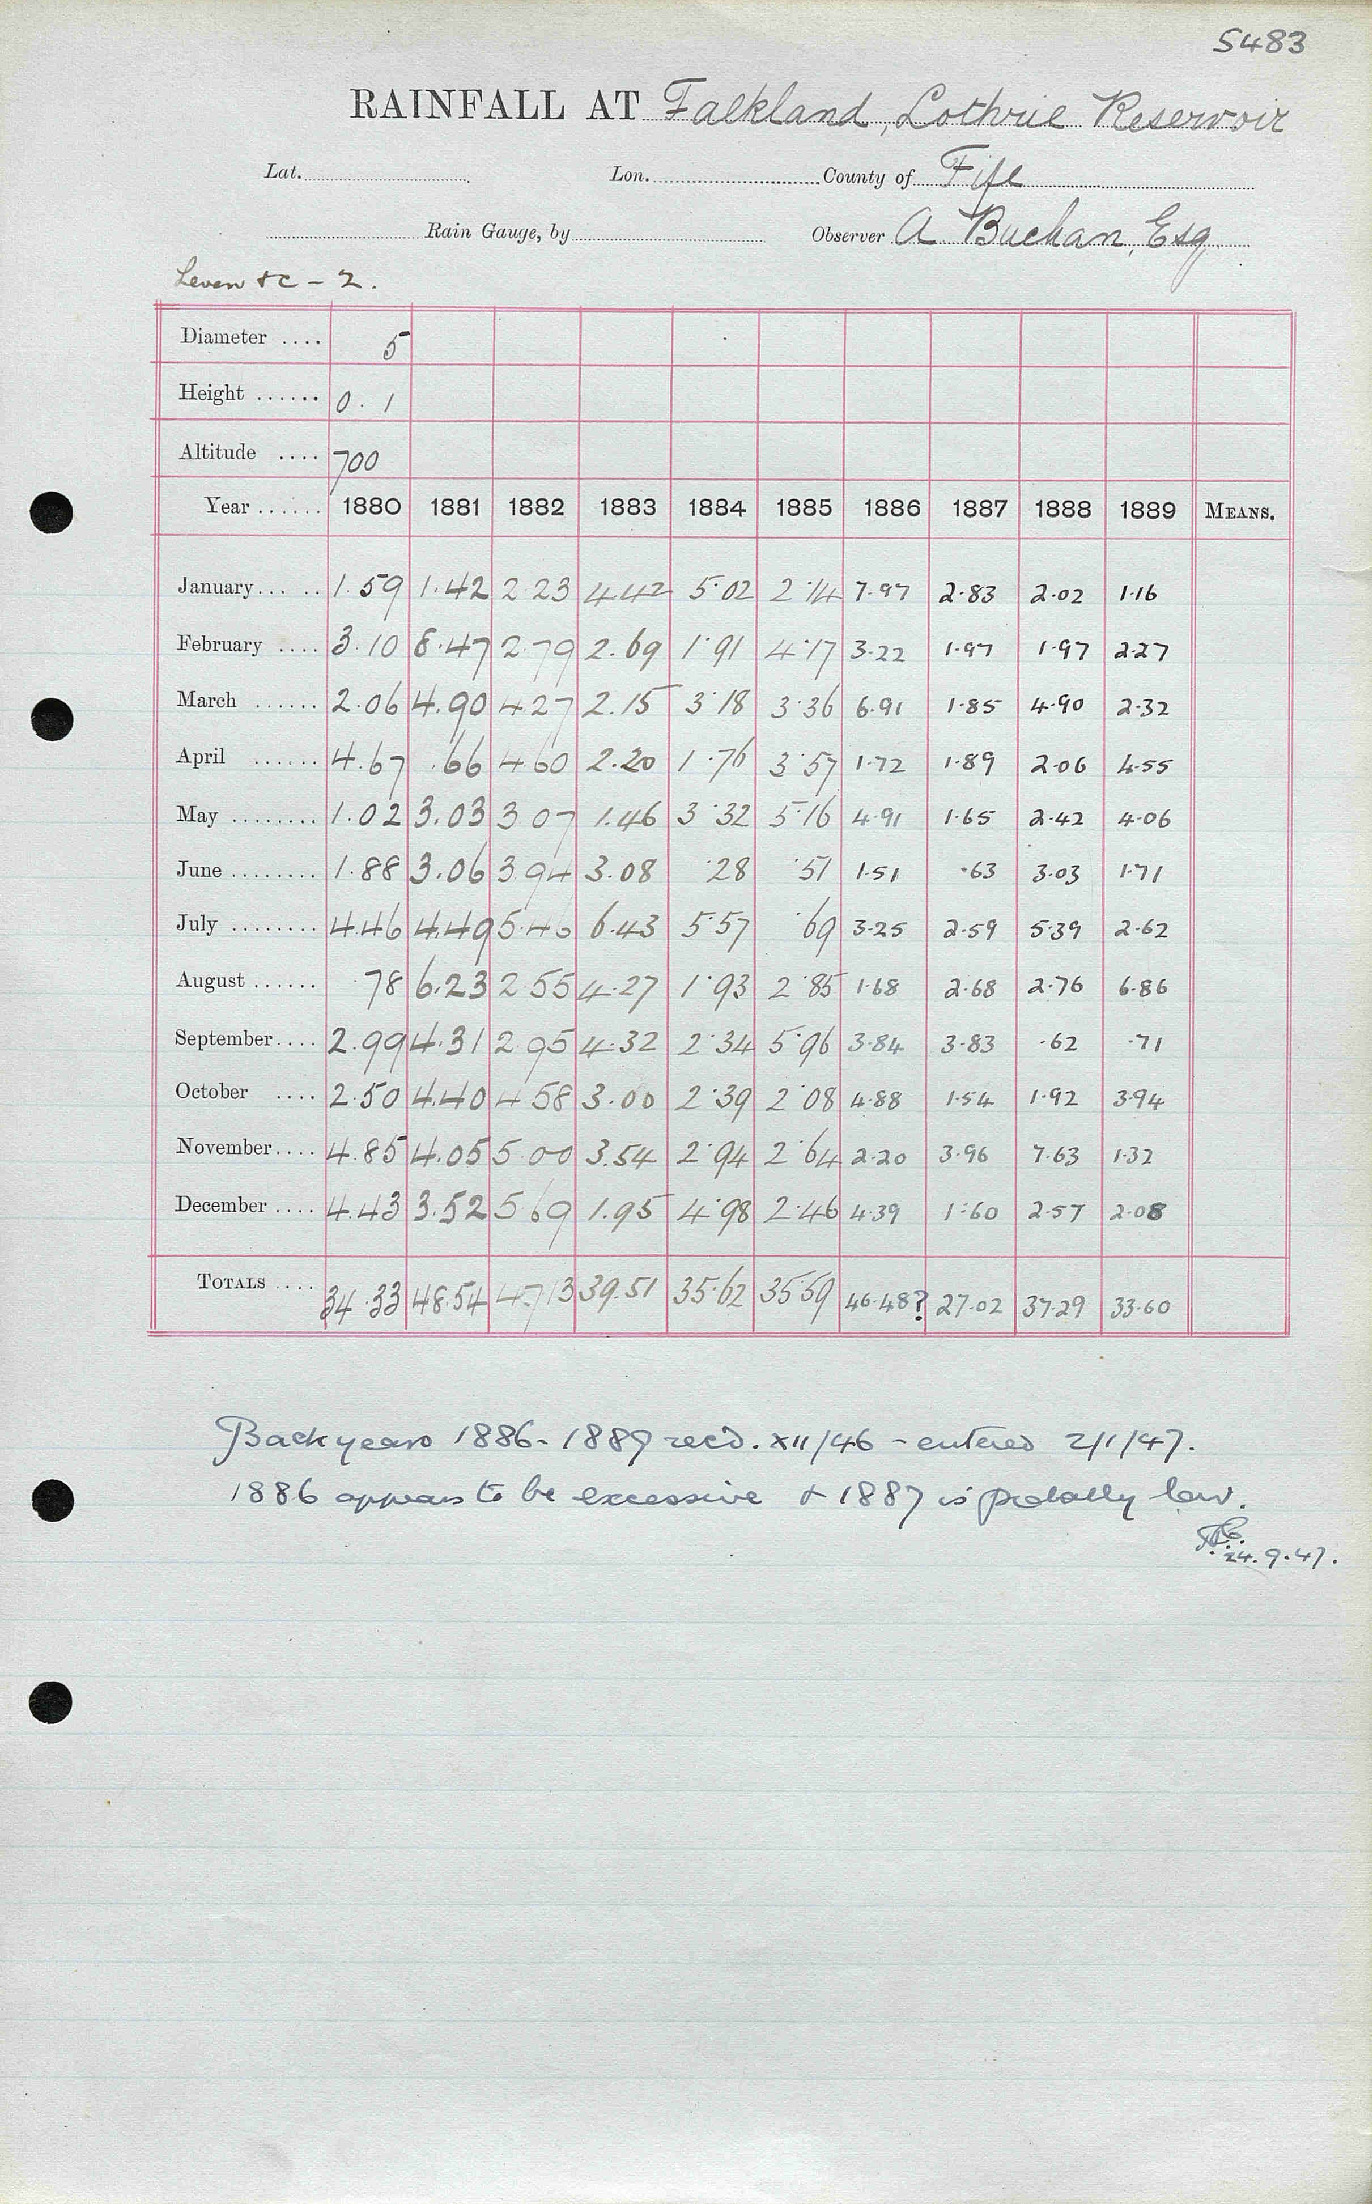 5483
RAINFALL AT Falkland, Lothrie Reservoir
Lat. Lon. County of Fife
Rain Gauge, by Observer A Buchan, Esq
Leven & C - 2.
Diameter .... 5
Height ...... 0.1
Altitude .... 700
Year ...... 1880 1881 1882 1883 1884 1885 1886 1887 1888 1889 MEANS.
January ..... 1.59 1.42 2 23 4.42 5.02 2.14 7.97 2.83 2.02 1.16
February .... 3.10 8.47 2.79 2.69 1.91 4.17 3.22 1.97 1.97 2.27
March ...... 2.06 4.90 4 27 2.15 3.18 3.36 6.91 1.85 4.90 2.32
April ...... 4.67 .66 4 60 2.20 1.76 3.57 1.72 1.89 2.06 4.55
May ........ 1.02 3.03 3 07 1.46 3.32 5.16 4.91 1.65 2.42 4.06
June ........ 1.88 3.06 3 94 3.08 .28 .51 1.51 .63 3.03 1.71
July ........ 4.46 4.49 5.46 6.43 5.57 .69 3.25 2.59 5.39 2.62
August ...... .78 6.23 2 55 4.27 1.93 2.85 1.68 2.68 2.76 6.86
September .... 2.99 4.31 2 95 4.32 2.34 5.96 3.84 3.83 .62 .71
October .... 2.50 4.40 4 58 3.00 2.39 2.08 4.88 1.54 1.92 3.94
November .... 4.85 4.05 5.00 3.54 2.94 2.64 2.20 3.96 7.63 1.32
December .... 4.43 3.52 5 69 1.95 4.98 2.46 4.39 1.60 2.57 2.08
TOTALS .... 34.33 48.54 47.13 39.51 35.62 35.59 46.48? 27.02 37.29 33.60
Back years 1886-1889 recd. XII/46 - entered 2/1/47.
1886 appears to be excessive & 1887 is probably low.
24.9.47.